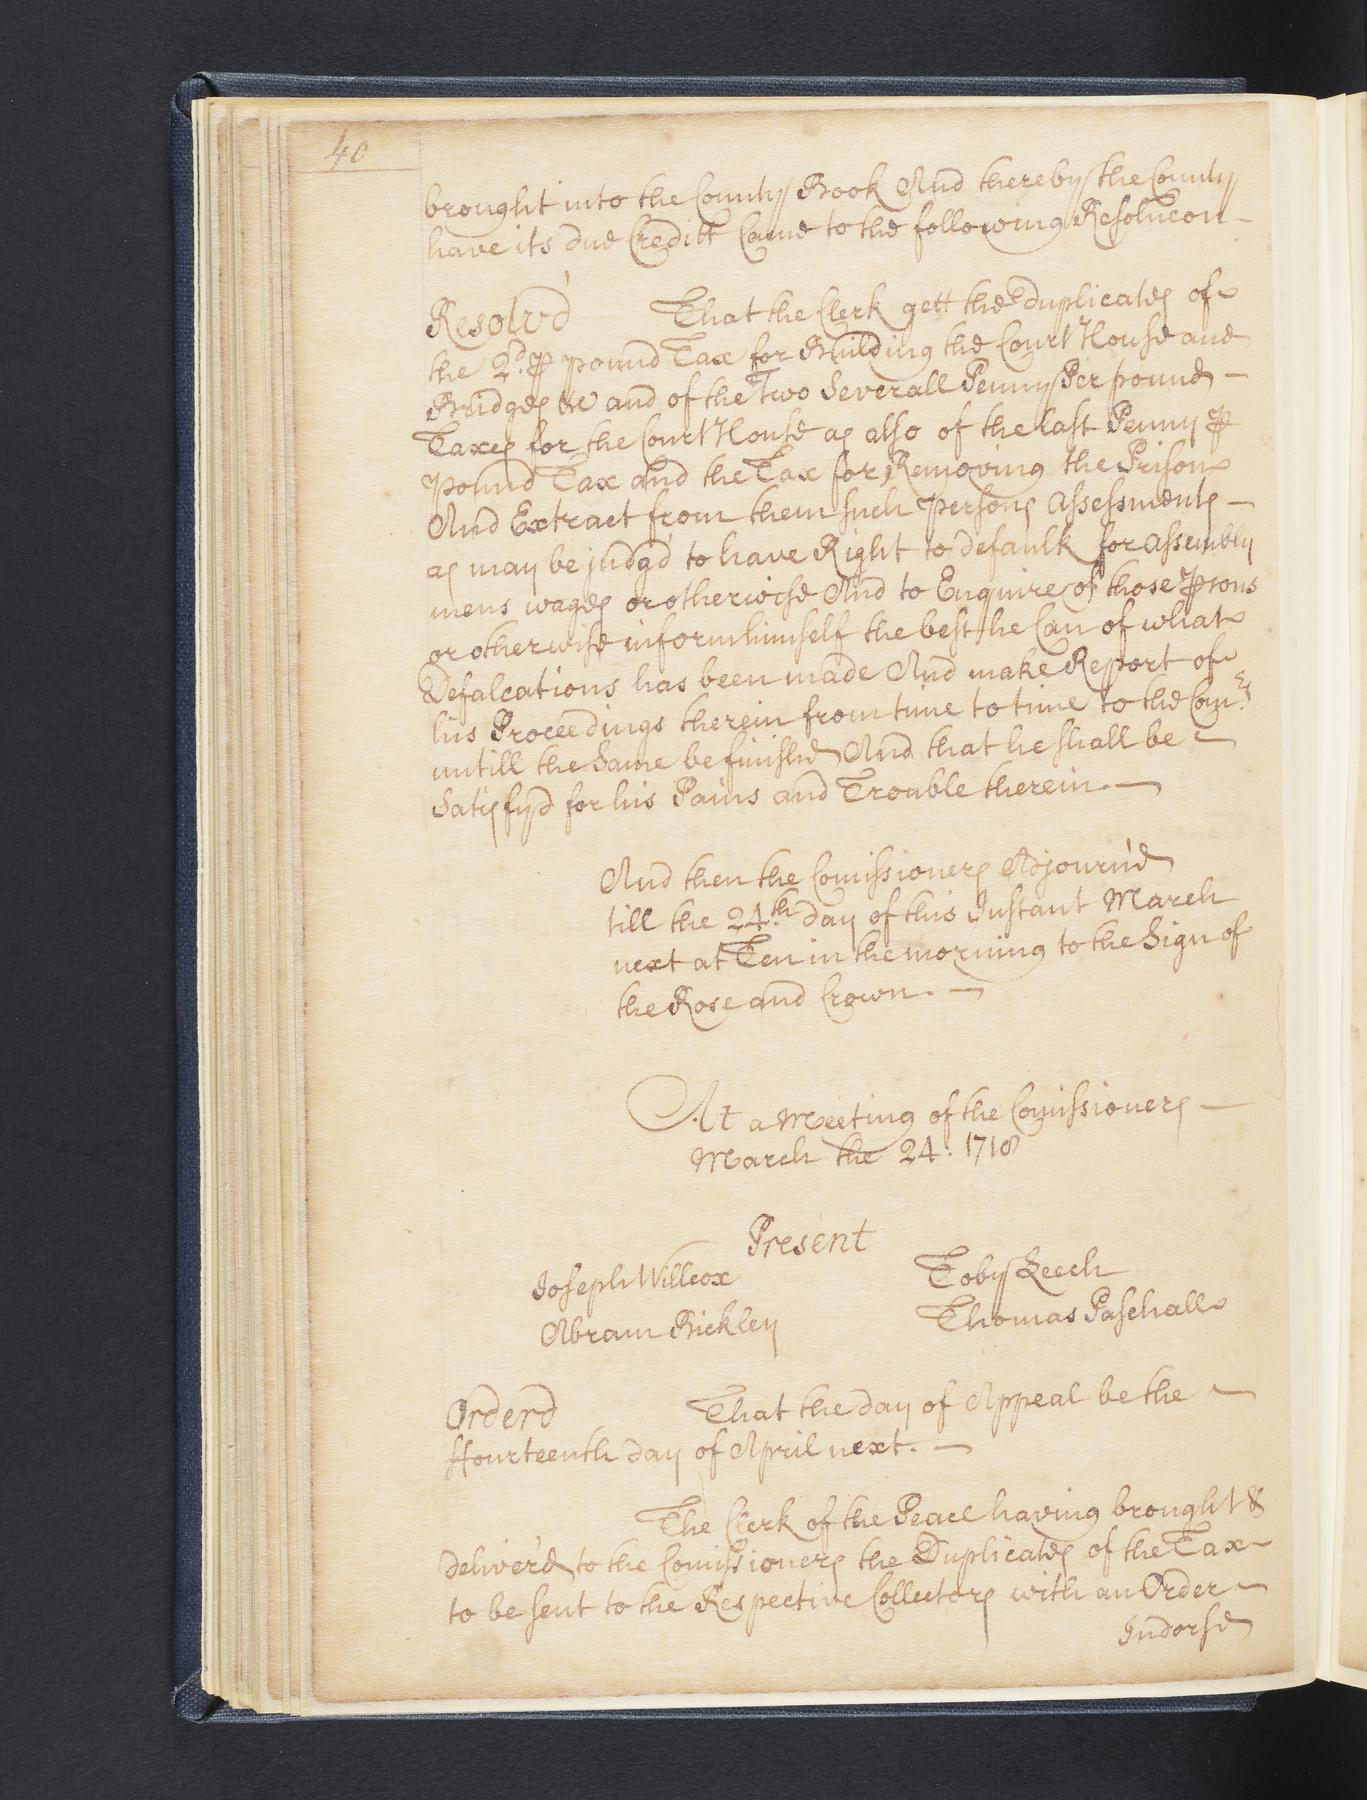 40
brought into the County Book And thereby the County
have its due Creditt Came to the following Resolucon
Resolv'd That the Clerk gett the Duplicates of
the 2d. ⅌ pound Tax for Building the Court House and
Bridges &c and of the Two Severall Penny Per pound
Taxes for the Court House as also of the last Penny ⅌
pound Tax and the Tax for Removing the Prison
And Extract from them such persons assessments
as may be judg'd to have Right to defaulk for assembly
mens wages or otherwise And to Enquire of those ⅌sons
or otherwise inform himself the best he Can of what
Defalcations has been made And make Report of
his Proceedings therein from time to time to the Com.rs
untill the Same be finished And that he shall be
Satisfyd for his Pains and Trouble therein.
And then the Comissioners Adjourn'd
till the 24th. day of this Instant March
next at Ten in the morning to the Sign of
the Rose and Crown.
At a Meeting of the Comissioners
March the 24: 1718
Present
Joseph Willcox Toby Leech
Abram Bickley Thomas Paschall
Orderd That the day of Appeal be the
ffourteenth day of April next.
The Clerk of the Peace having brought &
deliver'd to the Comissioners the Duplicates of the Tax
to be sent to the Respective Collectors with an Order
Indorsed